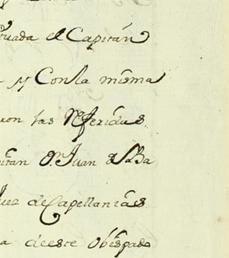 el Capitán
y Con la misma
ron las Referidas.
pitan Dn. Juan de
Juez de Capellanías
a de este Obispado